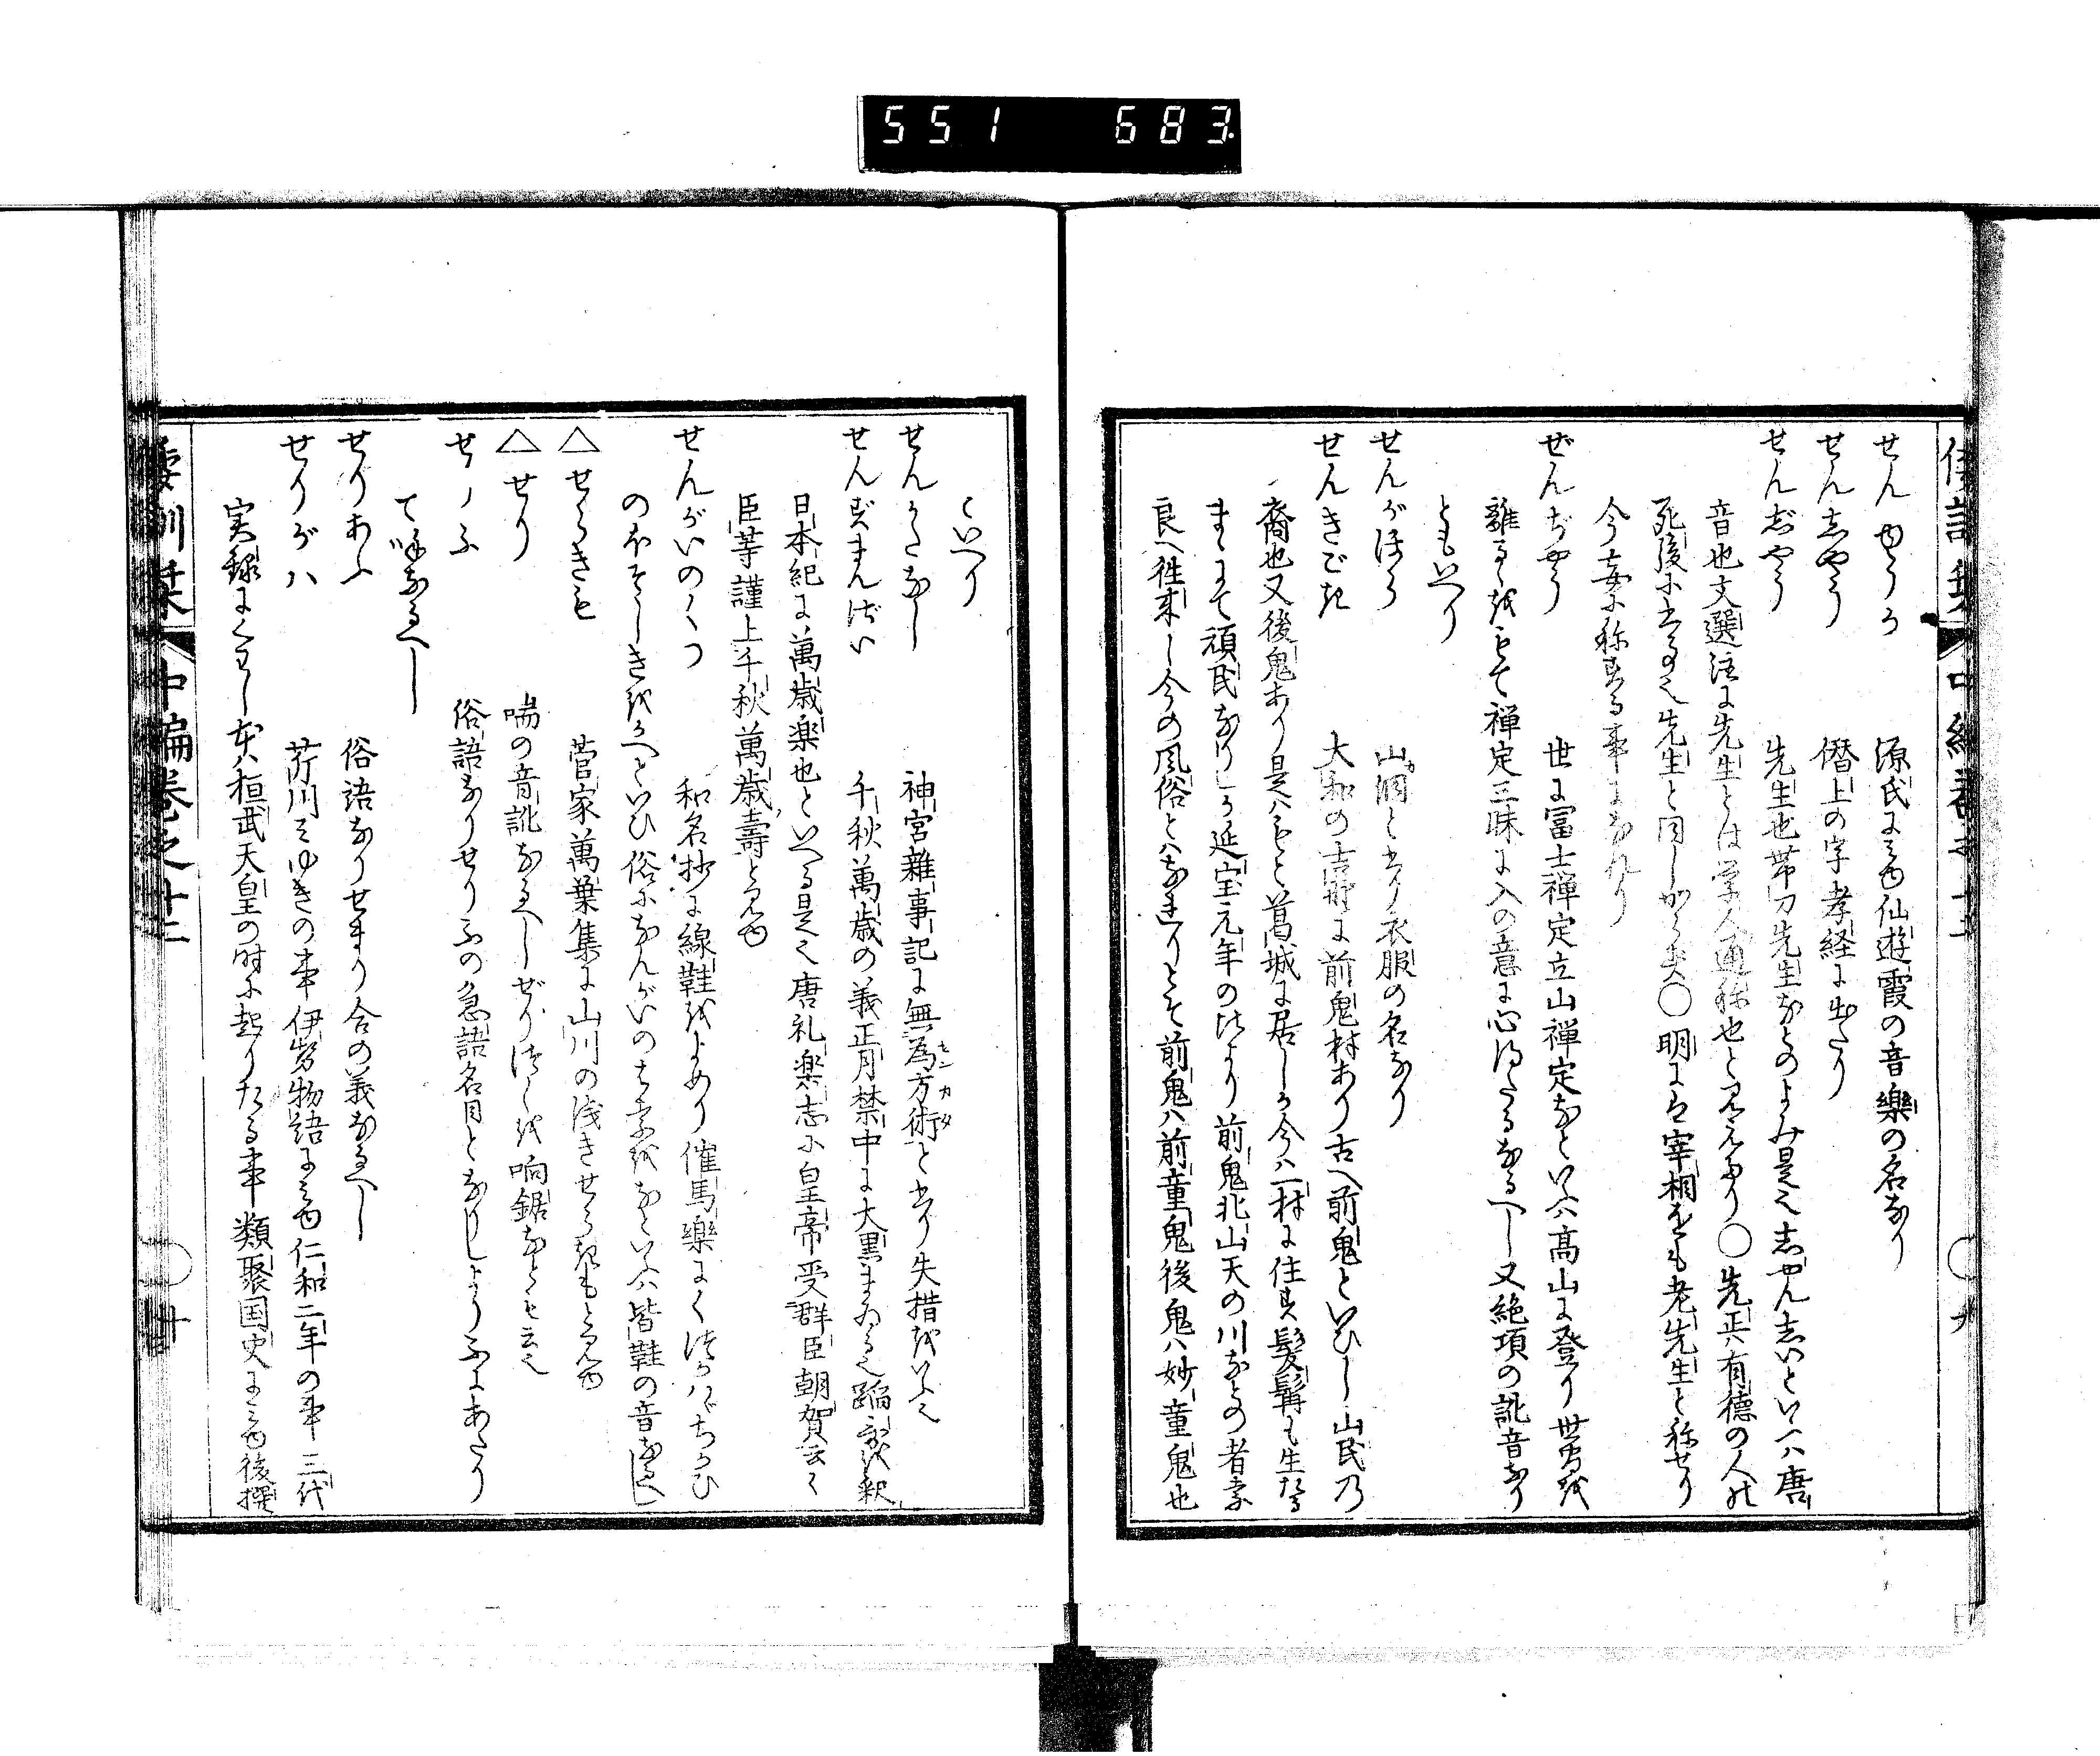 551 683
せんゆうか 源氏にみゆ仙遊霞の音樂の名なり
せんしやう 僭上の字孝経に出たり
せんじやう 先生也帯刀先生なとのよみ是也しやんしいといへハ唐
音也文選注に先生とは学人通称也と見えたり〇先正ハ有徳の人の
死後にいふ也先生と同しからす〇明には宰相をも老先生と称せり
今妄に称する事になれり
ぜんぢやう 世に冨士禅定立山禅定なといふハ高山に登り世与を
離るゝをもて禅定三昧に入の意に心得たるなるへし又絶項の訛音なり
ともいへり
せんがほう 山洞と書り衣服の名なり
せんきごき 大和の吉野に前鬼村あり古へ前鬼といひし山民乃
裔也又後鬼あり是ハもと葛城に居しか今ハ一村に住す髪髯も生たる
まゝにて頑民なりしか延宝元年の比より前鬼北山天の川なとの者奈
良へ往来し今の風俗とハなれりとそ前鬼ハ前童鬼後鬼ハ妙童鬼也
といへり
せんかたなし 神宮雑事記に無為方術と書り失措をいふ也
せんずまんざい 千秋萬歳の義正月禁中に大黒まゐる也蹈歌を釈
日本紀に萬歳楽也といへる是也唐礼楽志に皇帝受群臣朝賀云々
臣等謹上千秋萬歳壽と見ゆ
せんがいのくつ 和名抄に線鞋をよめり催馬樂にくつかハゞちかひ
のほそしきをかへといひ俗になんがいのはなをなといふハ皆鞋の音なるへし
△せゝらきも 菅家萬葉集に山川の浅きせゝらきもと見ゆ
△せり 喘の音訛なるへしぜりつくを响鋸なとゝも云也
せりふ 俗語なりせりふの急語名目となりしよりふにあたり
て呼なるへし
せりあふ 俗語なりせまり合の義なるへし
せりがハ 芹川みゆきの事伊勢物語にみゆ仁和二年の事三代
実録にくはし本ハ桓武天皇の時に起りたる事類聚国史にみゆ後撰
倭訓栞 中編巻之十二